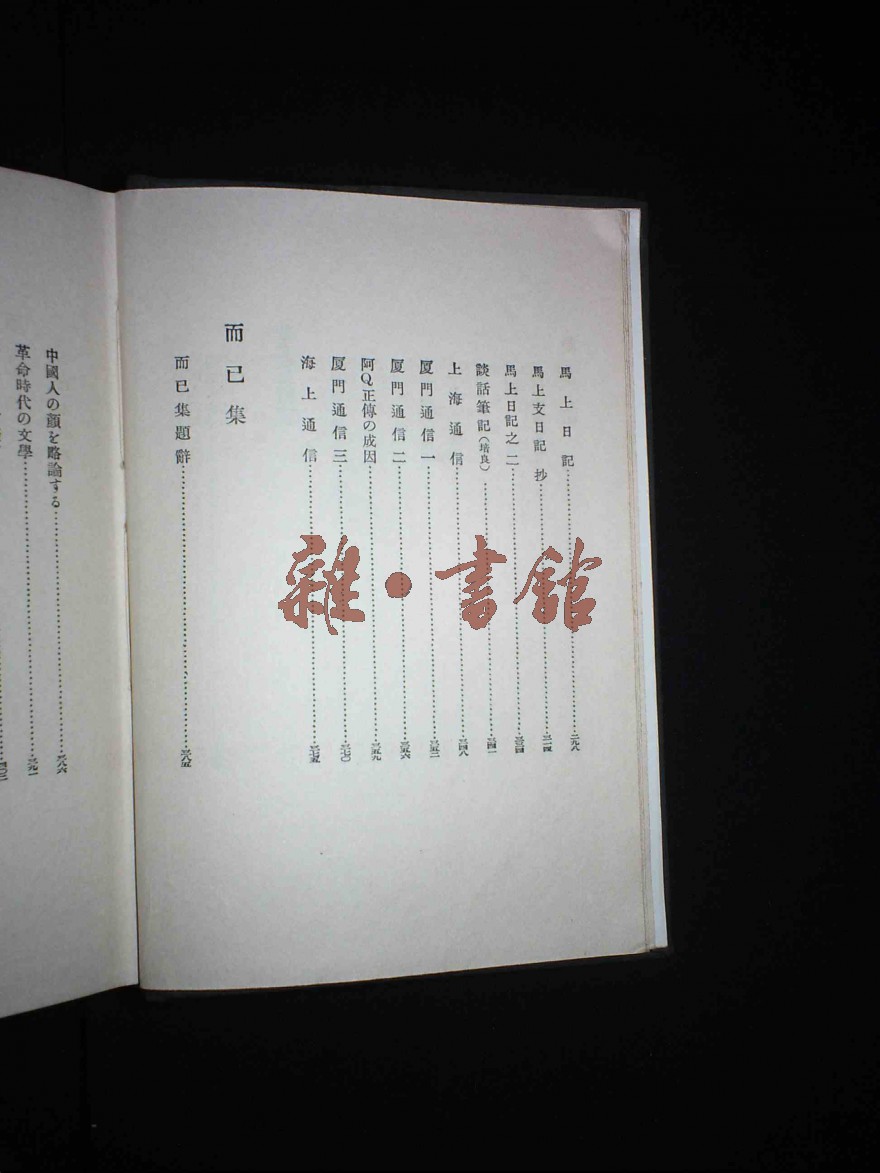 馬上日記……二九八
馬上支日記 抄……三一四
馬上日記之二……三三四
談話筆記（培良）……三四一
上海通信……三四八
厦門通信一……三五二
厦門通信二……三五六
阿Q正傳の成因……三五九
厦門通信三……三七〇
海上通信……三七五
而已集
而已集題辭……三八五
中國人の顏を略論する……三八六
革命時代の文學……三九一
雜・書館